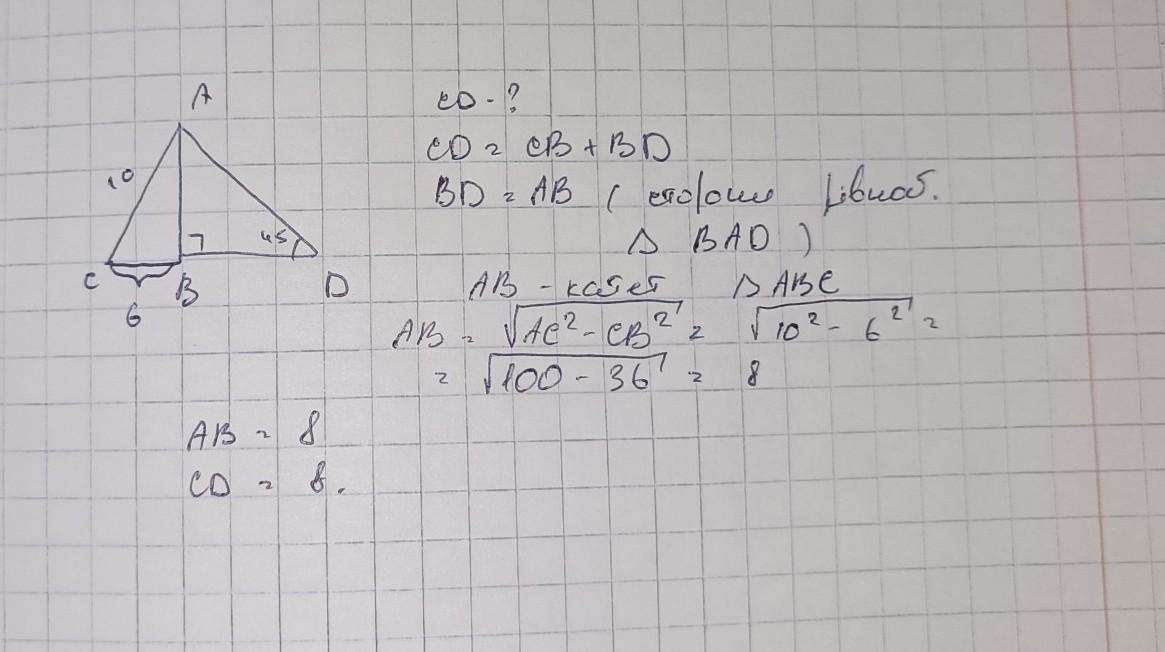 A
10
45
C
B
D
6
CD - ?
CD = CB + BD
BD = AB ( сторони рівноб.
Δ BAD )
AB - катет Δ ABC
AB = √AC² - CB² = √10² - 6² =
= √100 - 36 = 8
AB = 8
CD = 8.